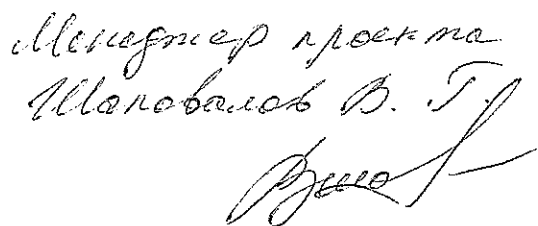 Менеджер проекта
Шаповалов В. Г.